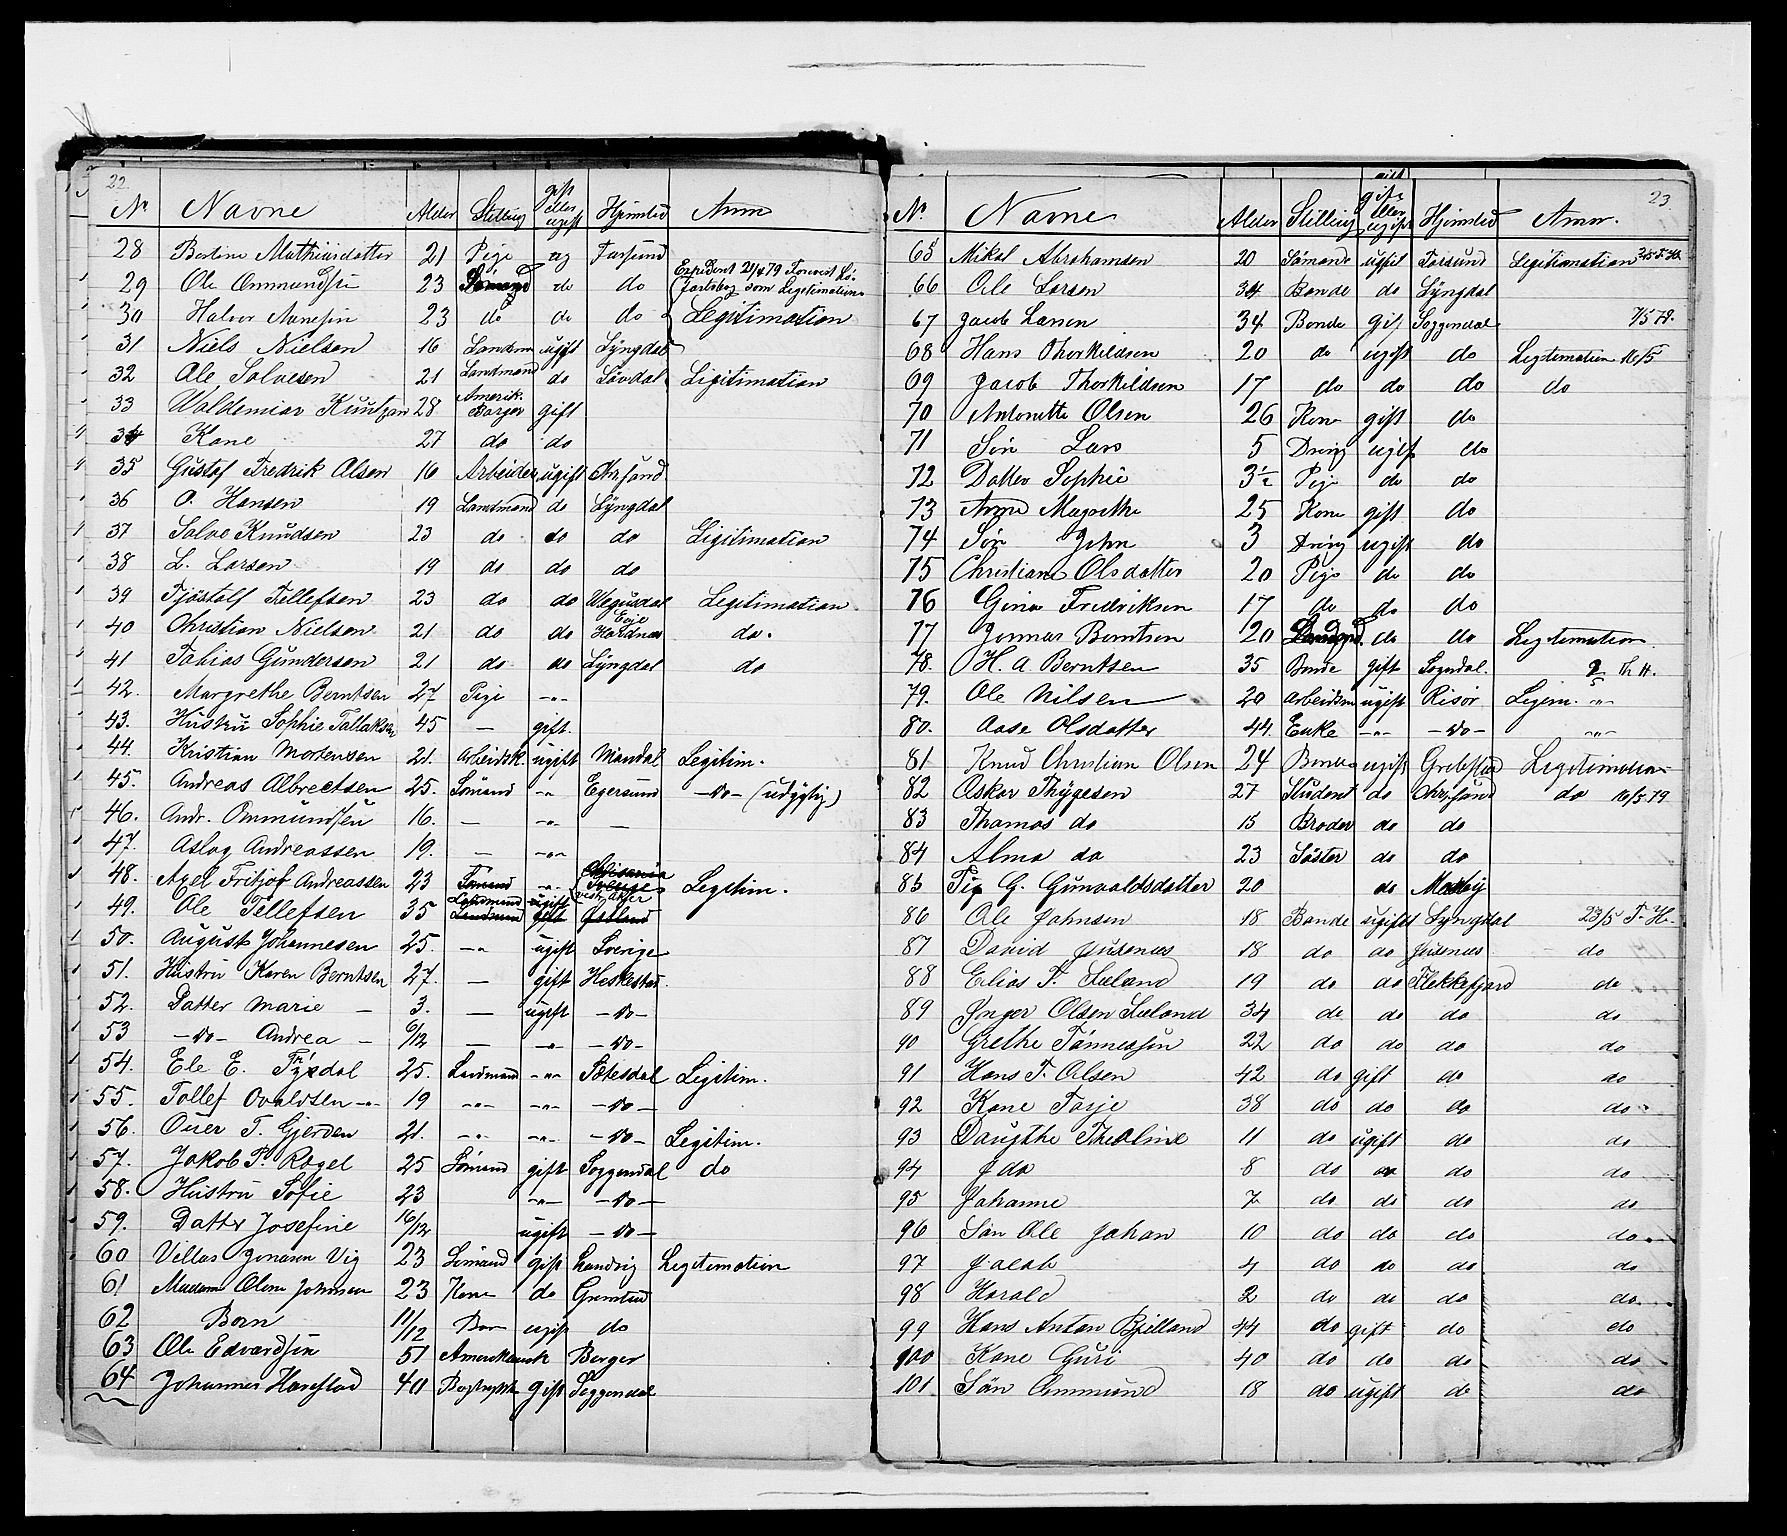 22
No Navne Alder Stilling gift eller ugift Hjemsted Anm
28 Bertine Mathiasdatter 21 Pige ug Farsund
29 Ole Ommundsen 23 Sömand do do Expedent 21/4 79 Forevist Sö-
30 Halvor Aanesen 23 do do do Legitimation
31 Niels Nielsen 16 Landm ugift Lyngdal
32 Ole Salvesen 21 Landmand do Lövdal Ligitimation
33 Waldemiar Knutzen 28 Amerik. Borger gift
34 Kone 27 do do
35 Gustaf Fredrik Olsen 16 Arbeider ugift Chrsand
36 O. Hansen 19 Landmand do Lyngdal
37 Salve Knudsen 23 do do do Ligitimation
38 L. Larsen 19 do do do
39 Tjöstolf Tellefsen 23 do do Wegusdal Legitimation
40 Christian Nielsen 21 do do Evje Hordnæs do.
41 Tobias Gunderson 21 do do Lyngdal do
42. Margrethe Berntsen 27 Pige -"-
43. Hustru Sophie Tallaksen 45 — gift.
44. Kristian Mortensen 21. Arbeidsk. ugift Mandal Legitim.
45. Andreas Albrectsen 25. Sömand -"- Egersund -do- (udygtig)
46. Andr. Ommundsen 16. — -"- —
47. Aslag Andreassen 19. — -"-
48. Axel Fritjof Andreassen 23 Sömand -"- Sverige Legitim.
49. Ole Tellefsen 35 Landmand ugift
50. August Johannesen 25. -"- ugift Sverige
51. Hustru Karen Berntsen 27. — gift Heskestad.
52. Datter Marie — 3. — ugift -do-
53 -do- Andrea — 6/12 — -"- -do-
54. Ele E. Tyrdal 25. Landmand -"- Sætesdal Legitim.
55. Tollef Ovaldsen -"- 19 -"- -"- -do-
56. Ouer T. Gjerden 21. -"- -"- -do- Legitim.
57. Jakob T. Rögel 25 Sömand gift Soggendal do
58. Hustru Sofie 23 -"- -do-
59. Datter Josefine 10/12 ugift -do-
60 Villas Jonasen Vig 23 Sömand gift Landvig Legitimation
61 Madam Olene Johnsen 23 Kone do Grimstad
62 Barn 11/12 Barn ugift do
63 Ole Edvardsen 51 Amerikansk Borger
64 Johannes Haavstad 40 gift Soggendal
23
No Navne Alder Stilling gift eller ugift Hjemsted Anm.
65 Mikal Abrahamsen 20 Sömand ugift Farsund Legitimation
66 Ole Larsen 34 Bonde do Lyngdal
67 Jacob Larsen 34 Bonde gif Soggendal 7/5 79.
68 Hans Thorkildsen 20 do ugift do Legitimation 10/5
69 Jacob Thorkildsen 17 do do do do
70 Antonette Olsen 26 Kone gift do
71 Sön Lars 5 Dreng ugift do
72 Datter Sophie 3½ Pige do do
73 Anne Magrethe 25 Kone gift do
74 Sön John 3 Dreng ugift do
75 Christiane Olsdatter 20 Pige do do
76 Gina Fredriksen 17 do do do
77 Jonnas Berntsen 20 do do Legtimation
78. H. A Berntsen 35 Bonde gift Sogndal. Th H.
79. Ole Nilsen 20 Arbeidsm ugift Risör Legim. -"-
80. Aase Olsdatter 44. Enke -"- -do- -"-
81 Knud Christian Olsen 24 Bonde ugift Grebstad Legitimation
82 Oskar Thygesen 27 Student do Chrsand do 10/5 79
83 Thomas do 15 Broder do do
84 Alma do 23 Söster do do
85 G. Gunvaldsdatter 20 do Mosby
86 Ole Johnsen 18 Bonde ugift Lyngdal 23/5 T. H.
87 David Jusenæs 18 do do Jusenæs do
88 Elias T. Læland 19 do do Flekkefjord do
89 Ynger Olsen Læland 34 do do do do
90 Grethe Tönnessen 22 do do do do
91 Hans T. Olsen 42 do gift do do
92 Kone Tarje 38 do do do do
93 Daugthe Theoline 11 do ugift do do
94 Ida 8 do do do do
95 Johanne 7 do do do do
96 Sön Ole Johan 10 do do do do
97 Jacob 4 do do do do
98 Harald 2 do do do do
99 Hans Anton Bjelland 44 do gift do do
100 Kone Guri 40 do do do do
101 Sön Ommund 18 do ugift do do